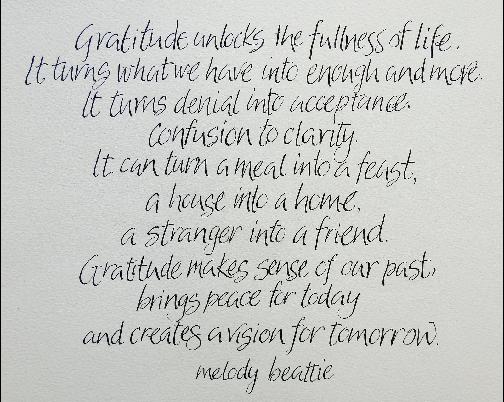 Gratitude unlocks the fullness of life.
It turns what we have into enough and more.
It turns denial into acceptance.
Confusion to clarity.
It can turn a meal into a feast,
a house into a home,
a stranger into a friend.
Gratitude makes sense of our past,
brings peace for today
and creates a vision for tomorrow.
melody beattie